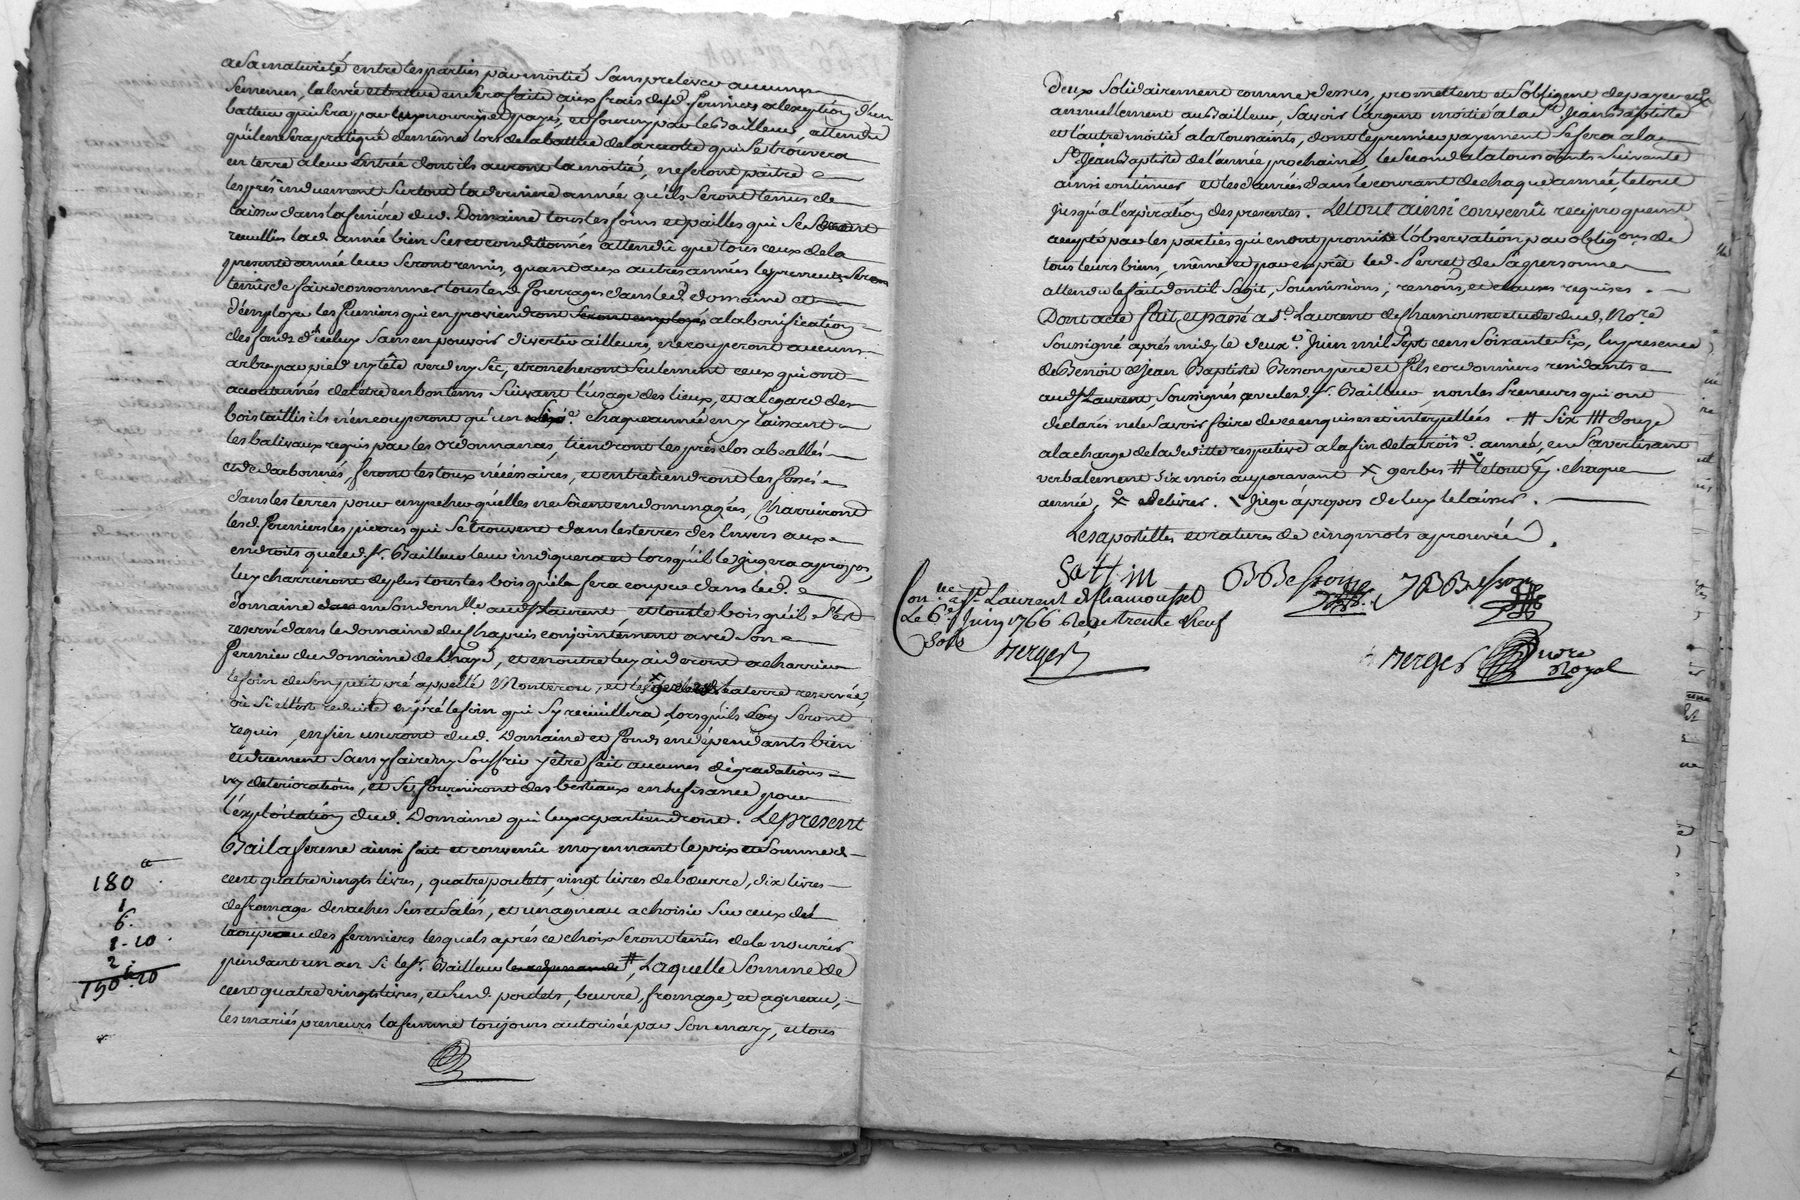 a sa maturité entre les parties par moitié sans prelever aucunes
semences, la levée et battue en sera faite aux frais desd. fermiers a l'exception d'un
batteur qui sera par eux nourri et payé, et fourny par le Bailleur, attendu
qu'il en sera pratiqué de même lors de la battue de la recolte qui se trouvera
en terre a leur Entrée dont ils auront la moitié, ne feront paitre
les prés induement surtout la derniere année qu'ils seront tenus de
laisser dans la feniére dud. Domaine tous les foins et pailles qui se seront
recuëillis lad. année bien secs et conditionnés attendû que tous ceux de la
presente année leur seront remis, quant aux autres années les preneurs seront
tenus de faire consommer tous led. fourrages dans led. domaine et
d'employer les fumiers qui en proviendront seront employés a la bonification
des fonds d'iceluy sans en pouvoir divertir ailleurs, ne couperont aucuns
arbre par pied ny tête verd ny sec, etroncheront seulement ceux qui ont
accoutumés de l'être en bon tems suivant l'usage des lieux, et a l'egard des
bois taillis ils n'en couperont qu'un chaque année en y laissant
les balivaux requis par les ordonnances, tiendront les prés clos
et, feront les toux nécéssaires, et entretiendront les fossés
dans les terres pour empecher qu'elles ne soient endommagées, Charrieront
lesd. fermiers les pierres qui se trouvent dans les terres des envers aux
endroits que led. sr. Bailleur leur indiquera et lorsqu'il le jugera apropos,
luy charrieront de plus tous les bois qu'il fera couper dans led.
domaine en son domlle aud. St Laurent, et tout le bois qu'il s'est
reservé dans le domaine du Chapuis conjointement avec son
fermier du domaine de, et en outre luy aideront a charrier
le foin de son petit pré appellé Monterou, et la terre reservée,
où si elle est reduite en pré le foin qui s'y recuëillera, lorsqu'ils en seront
requis, enfin useront dud. Domaine et fonds en dépendants bien
et duement sans y faire ny souffrir y être fait aucunes dégradations
ny deteriorations, et se fourniront des bestiaux en suffisance pour
l'exploitation dud. Domaine qui leur apartiendront. Le present
Bail a ferme ainsi fait et convenû moyennant le prix et Somme de
cent quatre vingts livres, quatre poulets, vingt livres de beurre, dix livres
de fromage de vaches secs et salés, et un agneau a choisir sur ceux du
troupeau des fermiers lesquels aprés ce choix seront tenûs de le nourrir
pendant un an si le sr. Bailleur #, Laquelle Somme de
cent quatre vingts livres, et sud. poulets, beurre, fromage, et agneau,
les mariés preneurs la femme toujours autorisée par son mary, et tous
180
1
6.
1-10.
2
190-10
deux Solidairement comme dessus, promettent et s'obligent de payer
annuellement au Bailleur, savoir l'argent moitié a la St. Jean Baptiste
et l'autre moitié a la Toussaints, dont le premier payement se fera a la
St. Jean Baptiste de l'année prochaine, le second a la toussaints suivante
ainsi continuer et les danrées dans le courant de chaque année, le tout
jusqu'a l'expiration des presentes. Le tout ainsi convenû reciproquemt
accepté par les parties qui en ont promise l'observation par obligons de
tous leurs biens, même et par exprêt led. Perret de sa personne
attendu le fait dont il s'agit, soumissions, renons, et clauses requises.
Dont acte fait et passé a St. Laurent de Chamousset etude dud. Nore
soussigné aprés midy le deuxe. Juin mil Sept cens Soixante Six, en presence
de Benoit et Jean Baptiste Besson pere et fils cordonniers residants
aud. St Laurent, soussignés avec led. sr. Bailleur, non les Preneurs qui ont
déclarés ne le savoir faire de ce enquis et interpellés # Six ## douze
a la charge de la deditte respective a la fin de la troise. année, en s'avertissant
verbalement six mois auparavant × gerbes # le tout chaque
année, juge á propos de leux le laisser.
Les apostilles et ratures de cinq mots aprouvées.
Sattin
B Besson
J B Besson
Conlle a St Laurent de Chamousset
Le 6e. Juin 1766 Recu trente Neuf
Sols
Berger
Berger
Nore
Royal